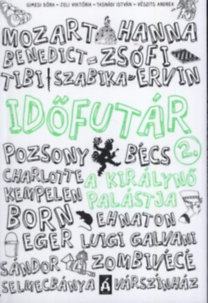 GIMESI DÓRA - ZELI VIKTÓRIA - TASNÁDI ISTVÁN - VÉSZITS ANDREA
MOZART HANNA
BENEDICT ZSÓFI
TIBI SZABIKA ERVIN
IDŐFUTÁR
POZSONY BÉCS 2.
CHARLOTTE A KIRÁLYNŐ
KEMPELEN PALÁSTJA
BORN EHNATON
EGER LUIGI GALVANI
SÁNDOR ZOMBIVÉCÉ
SELMECBÁNYA VÁRSZÍNHÁZ